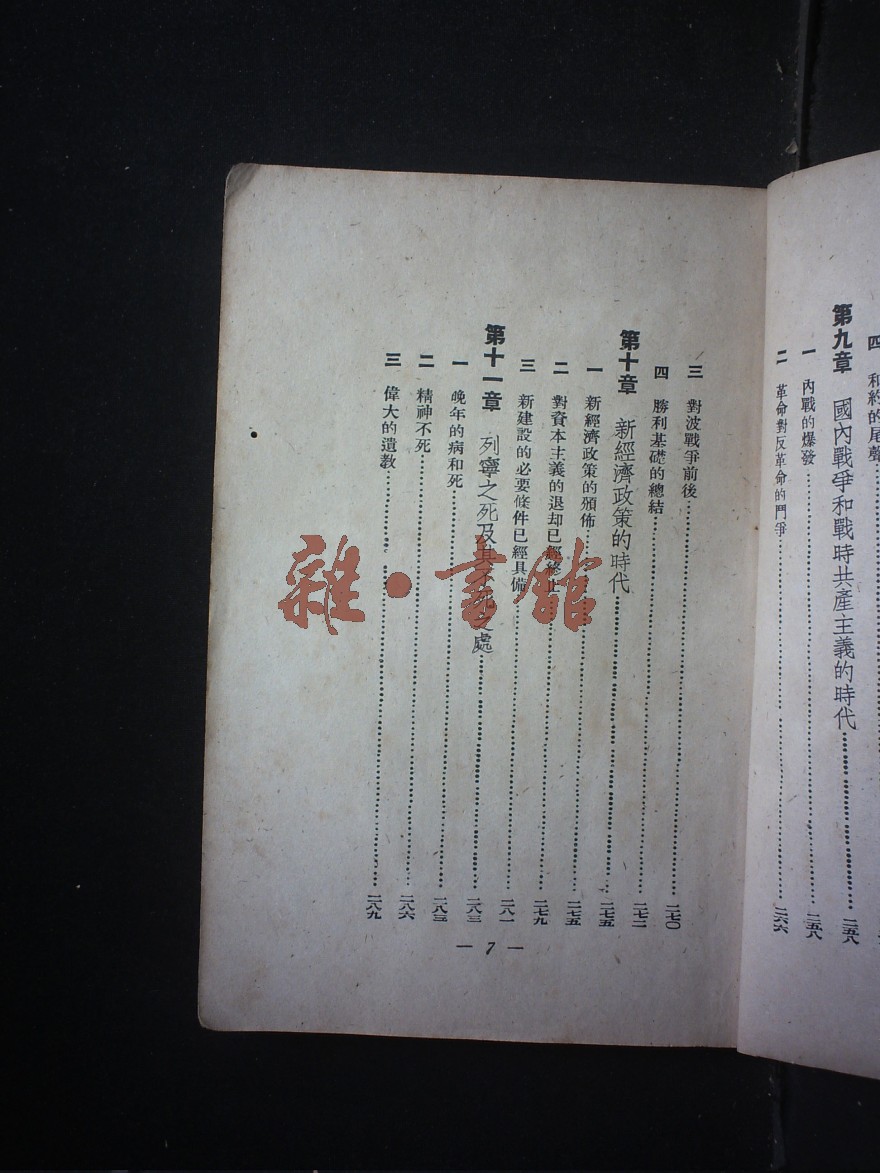 四 和約的尾聲
第九章 國內戰爭和戰時共產主義的時代 二五八
一 內戰的爆發 二五八
二 革命對反革命的鬥爭 二六六
三 對波戰爭前後 二七〇
四 勝利基礎的總結 二七二
第十章 新經濟政策的時代 二七五
一 新經濟政策的頒佈 二七五
二 對資本主義的退却已經終止 二七九
三 新建設的必要條件已經具備 二八一
第十一章 列寧之死及其不死之處 二八三
一 晚年的病和死 二八三
二 精神不死 二八六
三 偉大的遺教 二八九
— 7 —
雜·書館